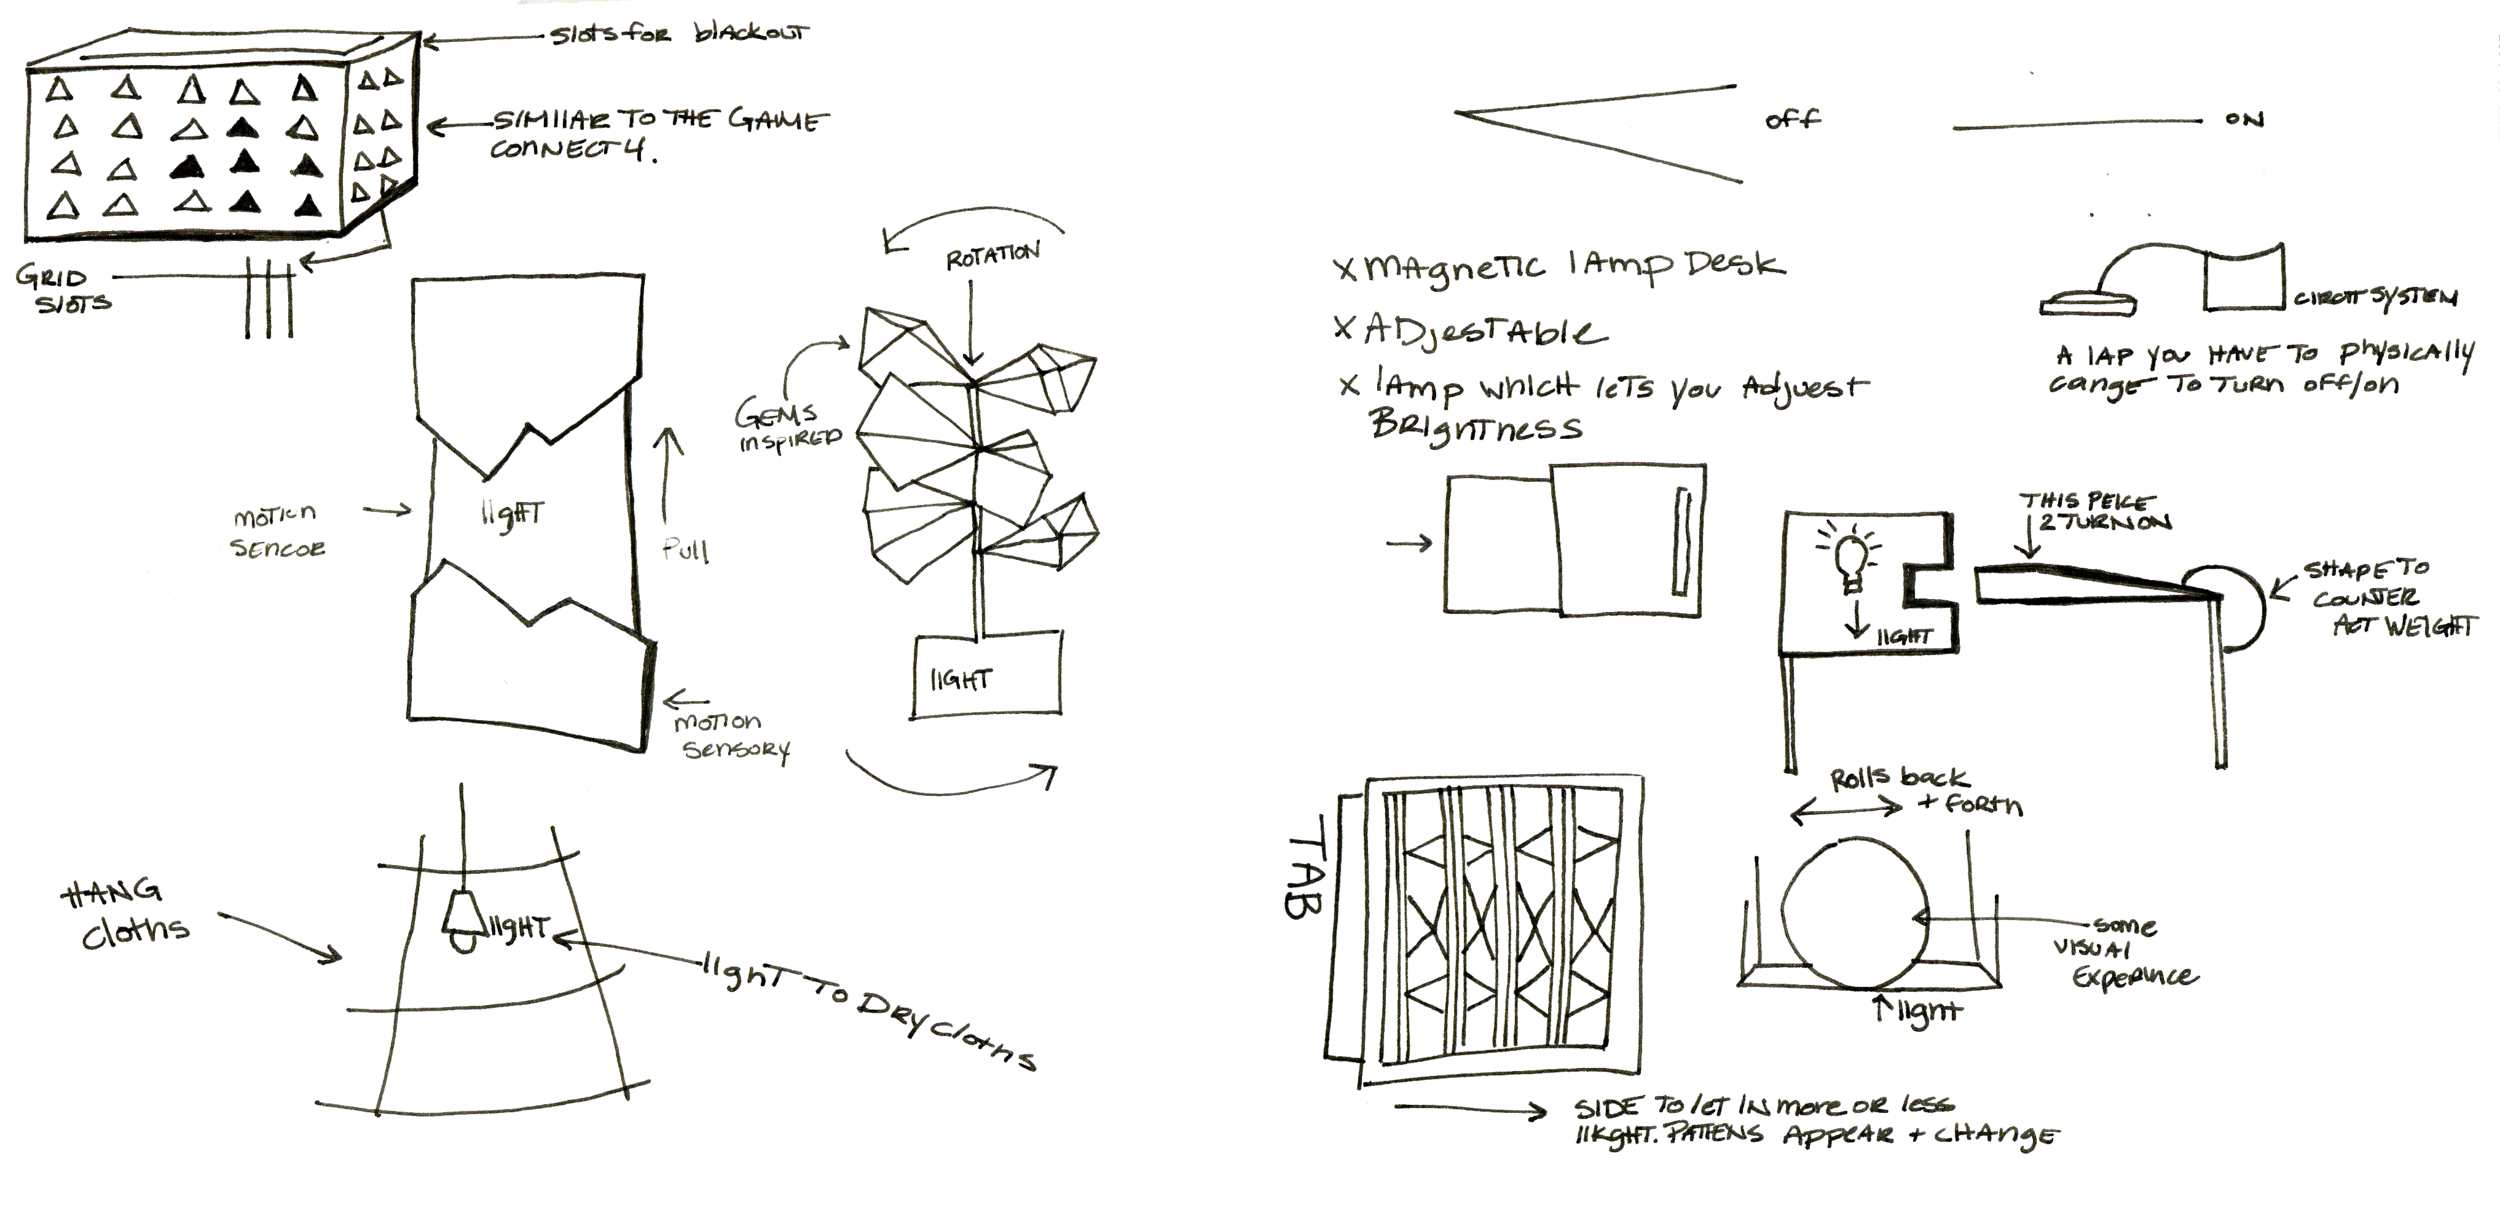 Slots for blackout
SIMIlAR TO THE GAME
CONNECT 4.
GRID
SLOTS
ROTATION
GEMS
INSPIRED
MOTION
SENCOR
lIgHT
Pull
lIGHT
MOTION
SENSORY
HANG
cloths
lIgHT
lIghT To DRY Cloths
off
ON
x MAgneTIC lAmp Desk
x ADjesTAble
x lAmp which leTs you Adjuest
BRIghTness
CIRCIT SYSTEM
A lAP you HAVE TO physICAlly
cange TO TURN off/on
THIS PEICE
2 TURN ON
SHAPE TO
COUNTER
ACT WEIGHT
lIGHT
Rolls back
+ forth
some
VISUAl
ExpeRINCE
light
TAB
SIDE To leT IN more OR less
lIKgHT. PATTENS AppeAR + CHANGE